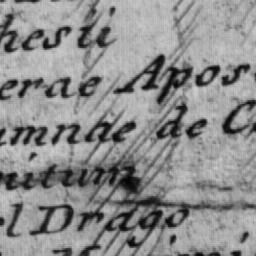 hesii
erae Apos
umnae de C
nitum
el Drago